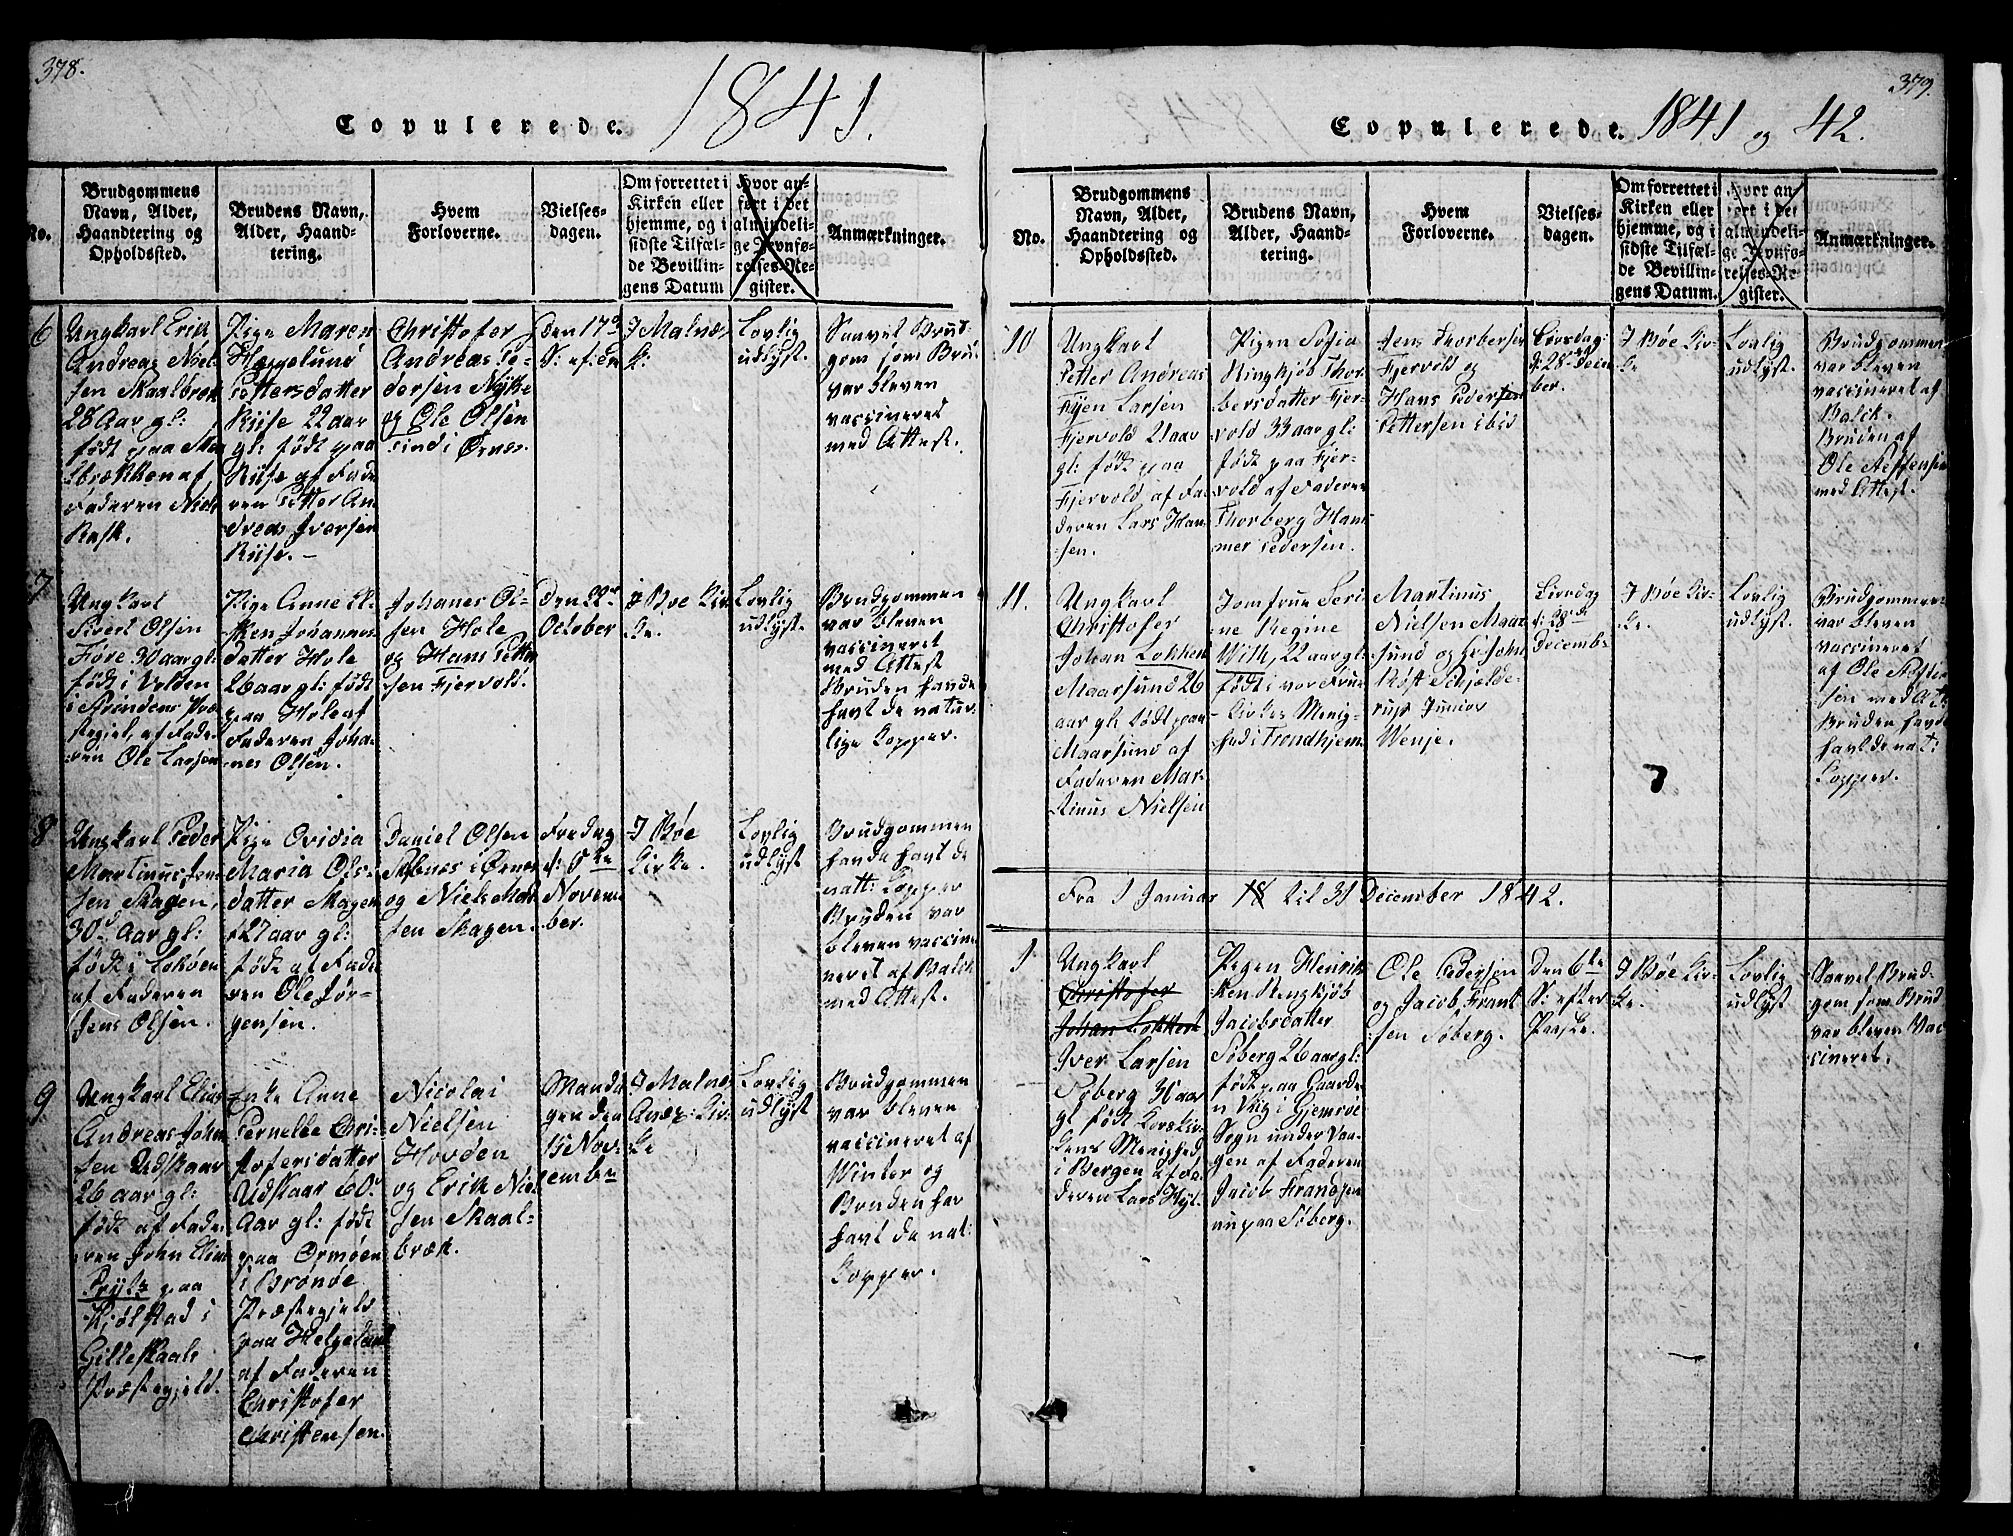 378.
Copulerede. 1841.
No.
Brudgommens
Navn, Alder,
Haandtering og
Opholdssted.
Brudens Navn,
Alder, Haand-
tering.
Hvem
Forloverne.
Vielses-
dagen.
Om forrettet i
Kirken eller
hjemme, og i
sidste Tilfæl-
de Bevillin-
gens Datum
Hvor an-
ført i det
almindeli-
ge Jevnfø-
relses-Re-
gister.
Anmærkninger.
6
Ungkarl Erik
Andreas Niel-
sen Skaalbræk
28 Aar gl:
født paa
af
Faderen Niels
Rask.
Pige Maren
Hæggelund
Pettersdatter
Riise 22 aar
gl: født paa
Riise af Fade
ren Petter An
dreas Iversen
Riise. –
Christofer
Andreas Pe-
dersen Nykke
og Ole Olsen
i Ørnes.
den 17de
S: ef:
I Malnæs
K:
Lovlig
udlyst.
Saavel Brud-
gom som Brud
var bleven
vaccineret
med Attest.
7
Ungkarl
Sivert Olsen
Føre 30 aar gl:
født i
i Præ-
stegjel, af Fade-
ren Ole Larsen
Pige Anne El-
sken Johannes
datter Hole
26 aar gl: født
paa Hole af
Faderen Joha-
nes Olsen.
Johanes Ol-
sen Hole
og Hans Petter
sen Fjervold.
Den 22de
October
I Bøe Kir-
ke.
Lovlig
udlyst.
Brudgommen
var bleven
vaccineret
med Attest
Bruden havde
havt de natur-
lige Kopper.
8
Ungkarl Peder
Martinus Jen-
sen Skagen,
30 Aar gl:
født i
af Faderen
Jens Olsen.
Pige Ovidia
Maria Ols-
datter Skagen
27 aar gl:
født af Fade
ren Ole Jør-
gensen.
Daniel Olsen
i Ørnes
og Niels
sen Skagen.
Fredag
d: 5te
Novem-
ber.
I Bøe
Kirke.
Lovlig
udlyst
Brudgommen
havde havt de
natt: Kopper
Bruden var
bleven vacci-
neret af Balch
med Attest.
9
Ungkarl Elias
Andreas John
sen Udskaar
26 aar gl:
født af Fade-
ren John Elias
Prytz paa
Kjølstad i
Gilleskaals
Præstegjeld.
Enke Anne
Pernelle Chri-
stofersdatter
Udskaar 60
Aar gl: født
paa Ormøen
i Brønøe
Præstegjeld
paa Helgeland
af Faderen
Christofer
Christensen.
Nicolai
Nielsen
Hovden
og Erik Niel
sen Skaal-
bræk.
Manda
gen den
15 Nov-
embr
I Malnes
Kir-
ke
Lovlig
udlyst
Brudgommen
var bleven
vaccineret af
Winter og
Bruden har
havt de nat:
Kopper.
379.
Copulerede. 1841 og 42.
No.
Brudgommens
Navn, Alder,
Haandtering og
Opholdssted.
Brudens Navn,
Alder, Haand-
tering.
Hvem
Forloverne.
Vielses-
dagen.
Om forrettet i
Kirken eller
hjemme, og i
sidste Tilfæl-
de Bevillin-
gens Datum.
Hvor an
ført i det
almindeli-
ge Jevnfø-
relses-Re
gister.
Anmærkninger.
10
Ungkarl
Petter Andreas
Eyen Larsen
Fjervold 21 aar
gl: født paa
Fjervold af Fa
deren Lars Han
sen.
Pigen Sofia
Ringkjøb Thor
bersdatter Fjer-
vold 33 aar gl:
født paa Fjer-
vold af Faderen
Thorberg Ham
mer Pedersen.
Jens Thorbersen
Fjervold og
Hans Pedersen
Pettersen ibid
Løverdag
d: 28de Decem
ber.
I Bøe Kir-
ke
Lovlig
udlyst.
Brudgommen
var bleven
vaccineret af
Balck.
Bruden af
Ole Steffensen
med Attest.
11.
Ungkarl
Christofer
Johan Lokkert
Maarsund 26
aar gl: født paa
Maarsund af
Faderen Mar-
tinus Nielsen
Jomfrue Seri-
ne Regine
With, 22 aar gl:
født i vor Frue
Kirkes Menig-
hed i Trondhjem
Martinus
Nielsen Maar
sund og Hr John
Røst Schjelde-
rup Junior
Wenje.
Løverdag
d: 28de
Decembr
I Bøe Kir-
ke.
Lovlig
udlyst.
Brudgommen
var bleven
vaccineret
af Ole Steffen
sen med Att:
Bruden havde
havt de nat:
Kopper.
Fra 1 Januar 18 til 31 December 1842.
1.
Ungkarl
Christofer
Johan Lokkert
Iver Larsen
Søberg 30 aar
gl født Korskir-
kens Menighed
i Bergen af Fa-
deren Lars
Pigen Henrik-
ken Rengkjøb
Jacobsdatter
Søberg 26 aar gl:
født paa Gaarde
n Viig i Gjemsøe
Sogn under Vaa-
gen af Faderen
Jacob Frandsen
nu paa Søberg.
Ole Pedersen
og Jacob Frant
sen Søberg.
Den 6te
S: efter
Paaske.
I Bøe Kir-
ke.
Lovlig
udlyst.
Saavel Brud-
gom som Brud
var bleven Vac-
cineret.